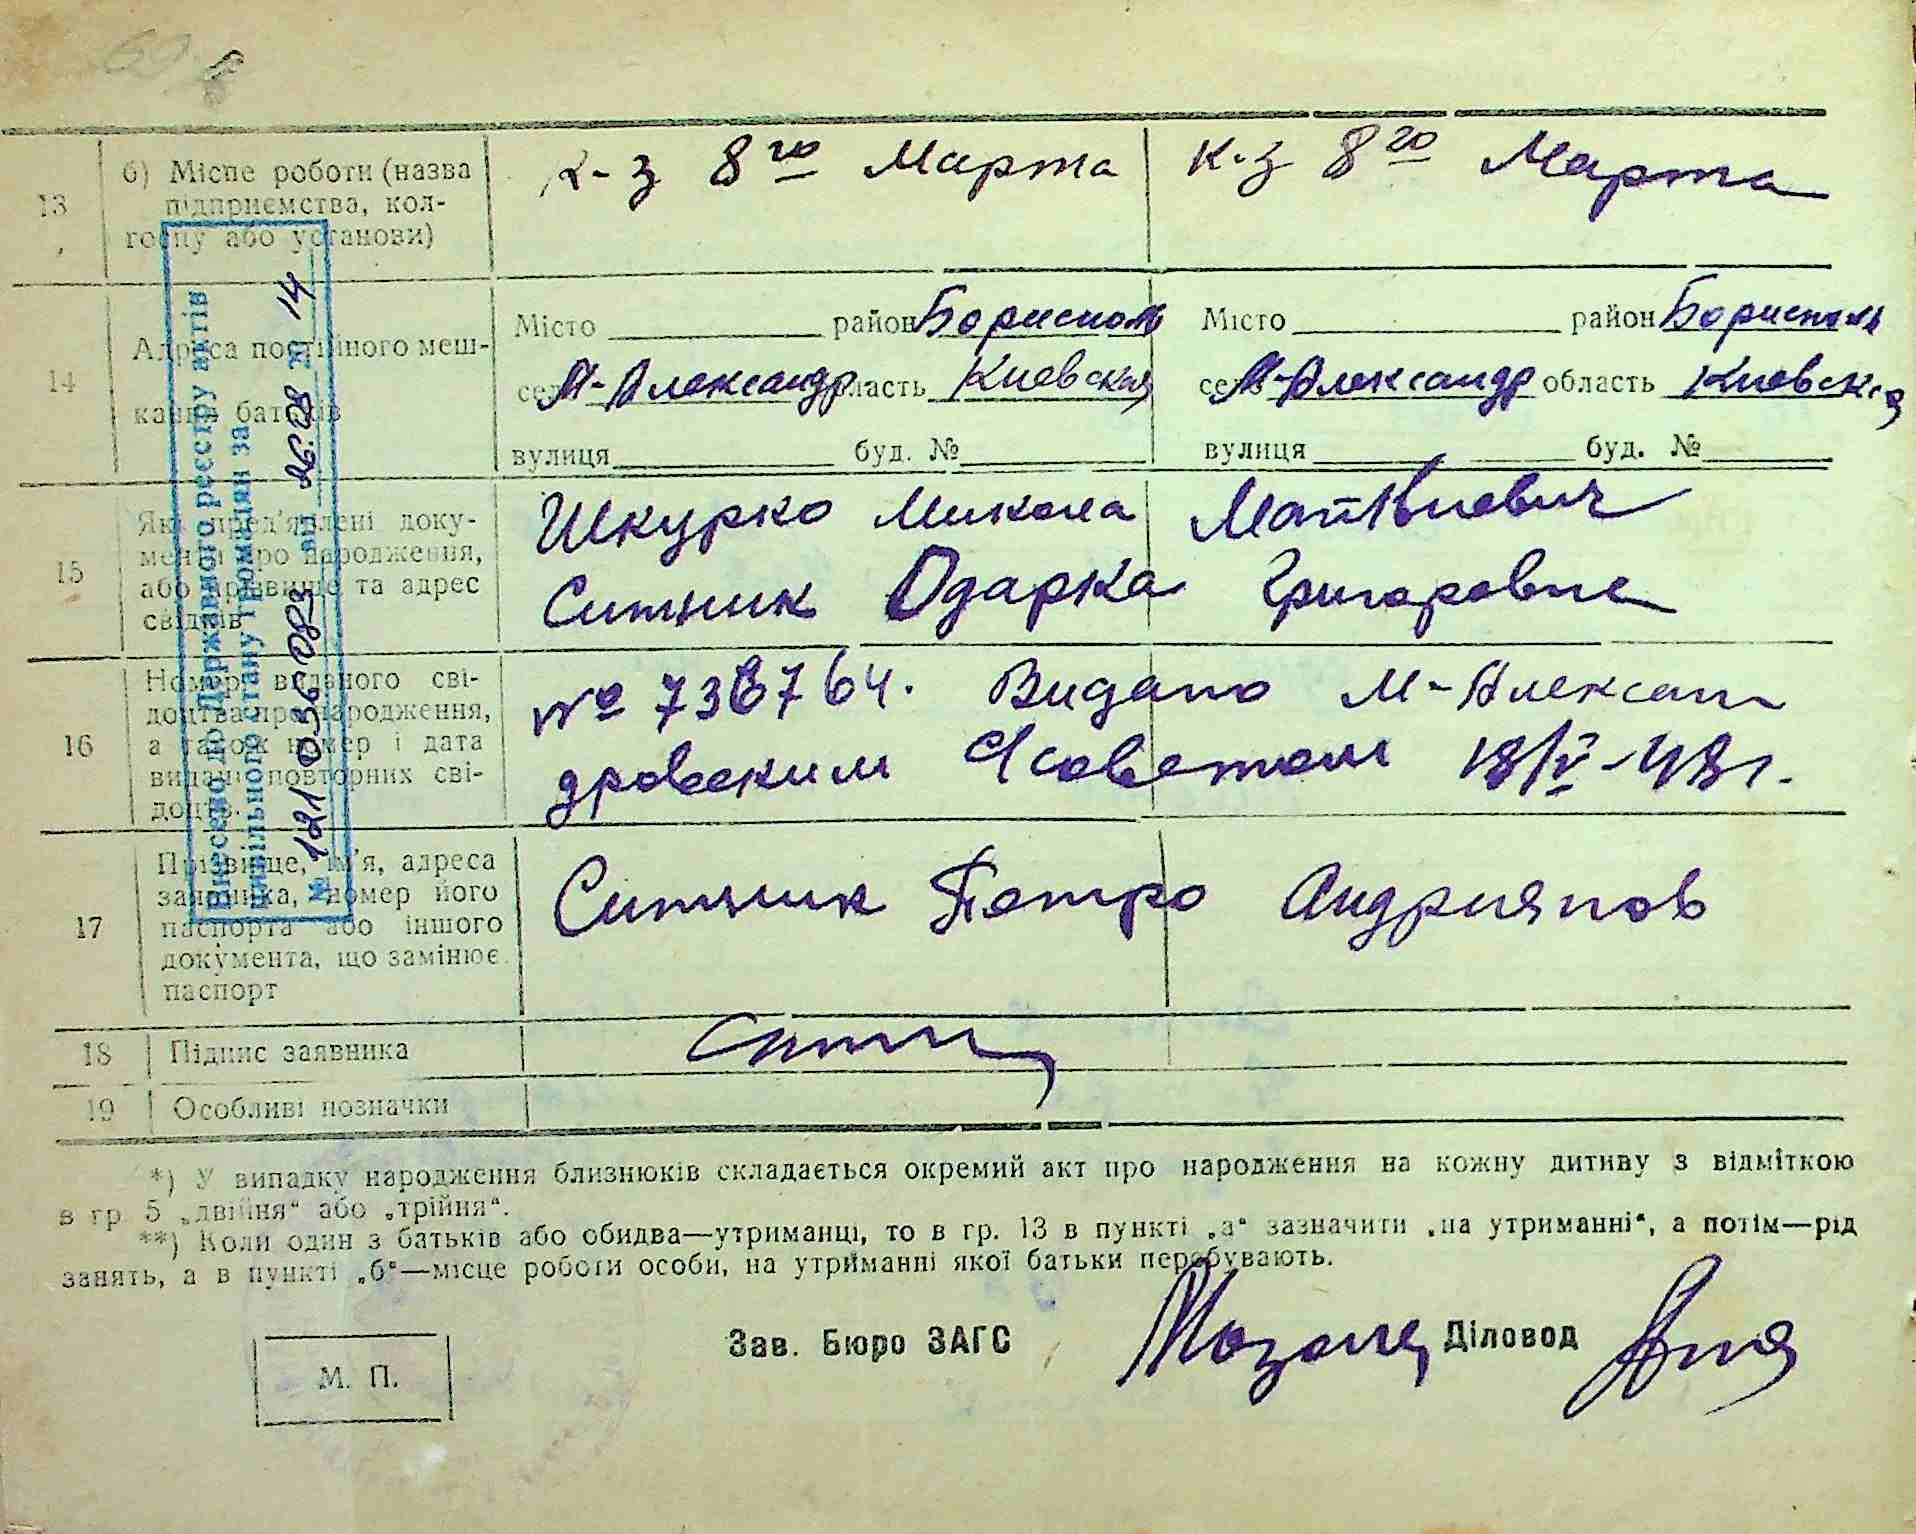 13
б) Місце роботи (назва
підприємства, кол-
госпу або установи)
к-з 8го Марта
к-з 8го Марта
14
Адреса постійного меш-
кання батьків
Місто район Борисполь
село М-Александр область Киевская
вулиця буд. №
Місто район Борисполь
село М-Александр область Киевская
вулиця буд. №
15
Які пред'явлені доку-
менти про народження,
або прізвище та адрес
свідків
Шкурко Микола Матвиевич
Ситник Одарка Григоровна
16
Номер виданого сві-
доцтва про народження,
а також номер і дата
видачі повторних сві-
доцтв.
№ 738764. Видано М-Алексан
дровским С/советом 18/V-48г.
17
Прізвище, ім'я, адреса
заявника, номер його
паспорта або іншого
документа, що замінює
паспорт
Ситник Петро Андриянов
18
Підпис заявника
19
Особливі позначки
Внесено до Державного реєстру актів
цивільного стану громадян за
№ 121 036 083 від 26.08 20 14
*) У випадку народження близнюків складається окремий акт про народження на кожну дитину з відміткою
в гр. 5 „двійня“ або „трійня“.
**) Коли один з батьків або обидва—утриманці, то в гр. 13 в пункті „а“ зазначити „на утриманні“, а потім—рід
занять, а в пункті „б“—місце роботи особи, на утриманні якої батьки перебувають.
Зав. Бюро ЗАГС
Діловод
М. П.